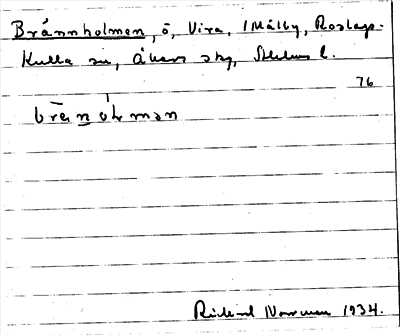 Brännholmen, ö, Vira, (Målby, Roslags-
Kulla sn, Åkers skg, Sthlms l.
76
brenɷlmən
Rickard Norrman 1934.